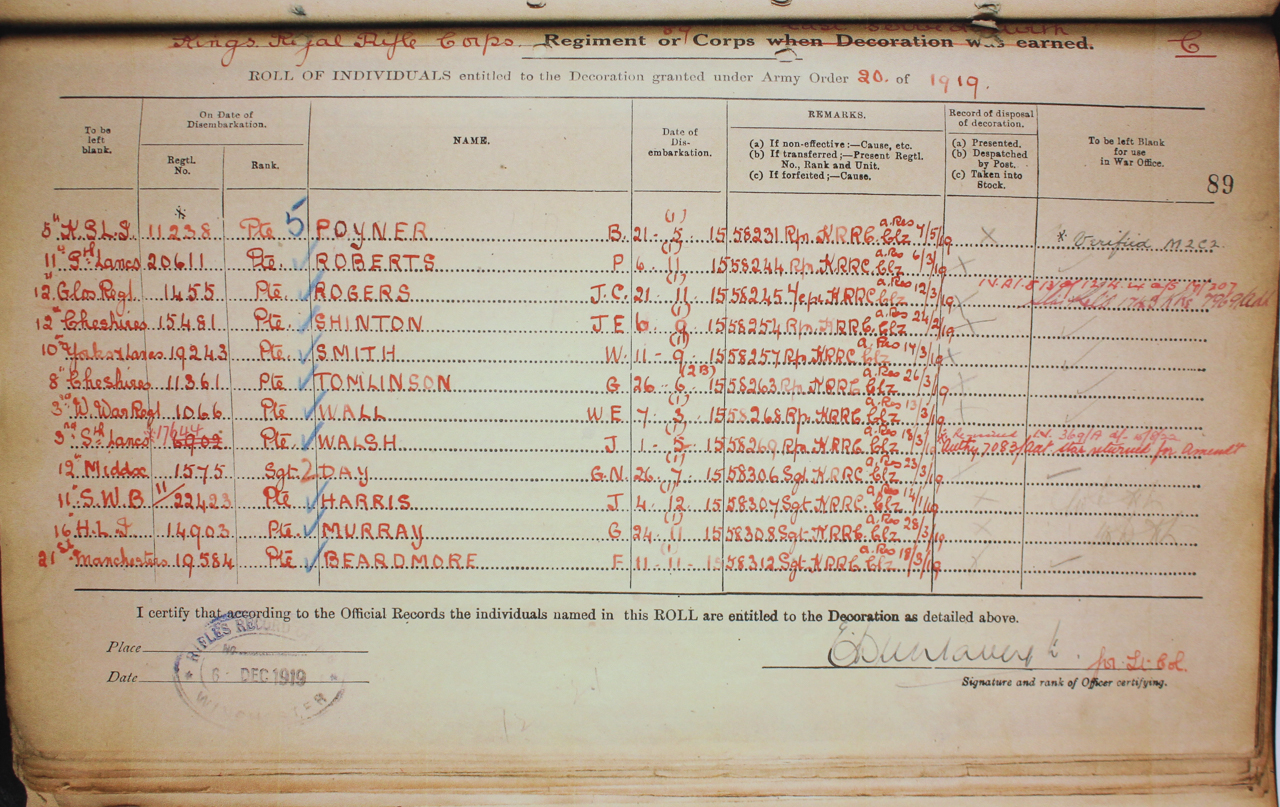 Kings Royal Rifle Corps. Regiment or Corps when Decoration was earned. C
ROLL OF INDIVIDUALS entitled to the Decoration granted under Army Order 20. of 1919.
To be left blank.
On Date of Disembarkation.
Regtl. No.
Rank.
NAME.
Date of Dis-embarkation.
REMARKS.
(a) If non-effective:—Cause, etc.
(b) If transferred;—Present Regtl. No., Rank and Unit.
(c) If forfeited;—Cause.
Record of disposal of decoration.
(a) Presented.
(b) Despatched by Post.
(c) Taken into Stock.
To be left Blank for use in War Office.
89
5" K.S.L.I. 11238 Pte 5 POYNER B. 21 - 5 (1) 15 58231 Rfn KRRC Clz a.Res 4/5/19 X * Verified M2C2
11" Sth Lancs 20611 Pte. ROBERTS P 6. 11 (1) 15 58244 Rfn. KRRC Clz a.Res 6/3/19 X
12 Glos Regt. 1455 Pte. ROGERS J.C. 21 11 (1) 15 58245 KRRC Clz a.Res 12/3/19
12" Cheshires 15481 Pte. SHINTON J E 6 9 (1) 15 58254 Rfn KRRC Clz a.Res 24/2/19 X
10" York & Lancs 19243 Pte. SMITH W. 11 - 9 (1) 15 58257 Rfn KRRC Clz a.Res 14/3/19 X
8" Cheshires 11361 Pte TOMLINSON G 26 - 6 (2B) 15 58263 Rfn KRRC Clz a.Res 26/3/19 X
3rd W. War Regt 1066 Pte WALL W E 7 3 (1) 15 58268 Rfn KRRC Clz a.Res 13/3/19 X
3rd Sth Lancs 17644 6902 Pte. WALSH J 1 - 5 15 58269 Rfn KRRC Clz a.Res 18/3/19 Star returned for Amendt
12" Middx 1575 Sgt 2 DAY G.N. 26 7 (1) 15 58306 Sgt KRRC Clz a.Res 23/3/19
11" S.W.B 11/22423 Pte HARRIS J 4 - 12 (1) 15 58307 Sgt KRRC Clz a.Res X
16" H.L.I 14903 Pte. MURRAY G 24 11 (1) 15 58308 Sgt KRRC Clz a.Res 28/3/19 X
21st Manchesters 19584 Pte BEARDMORE F 11 - 11 - 15 58312 Sgt KRRC Clz a.Res 18/3/19 X
I certify that according to the Official Records the individuals named in this ROLL are entitled to the Decoration as detailed above.
Place
Date
RIFLES RECORD
No
6 - DEC 1919
WINCHESTER
for Lt Col.
Signature and rank of Officer certifying.